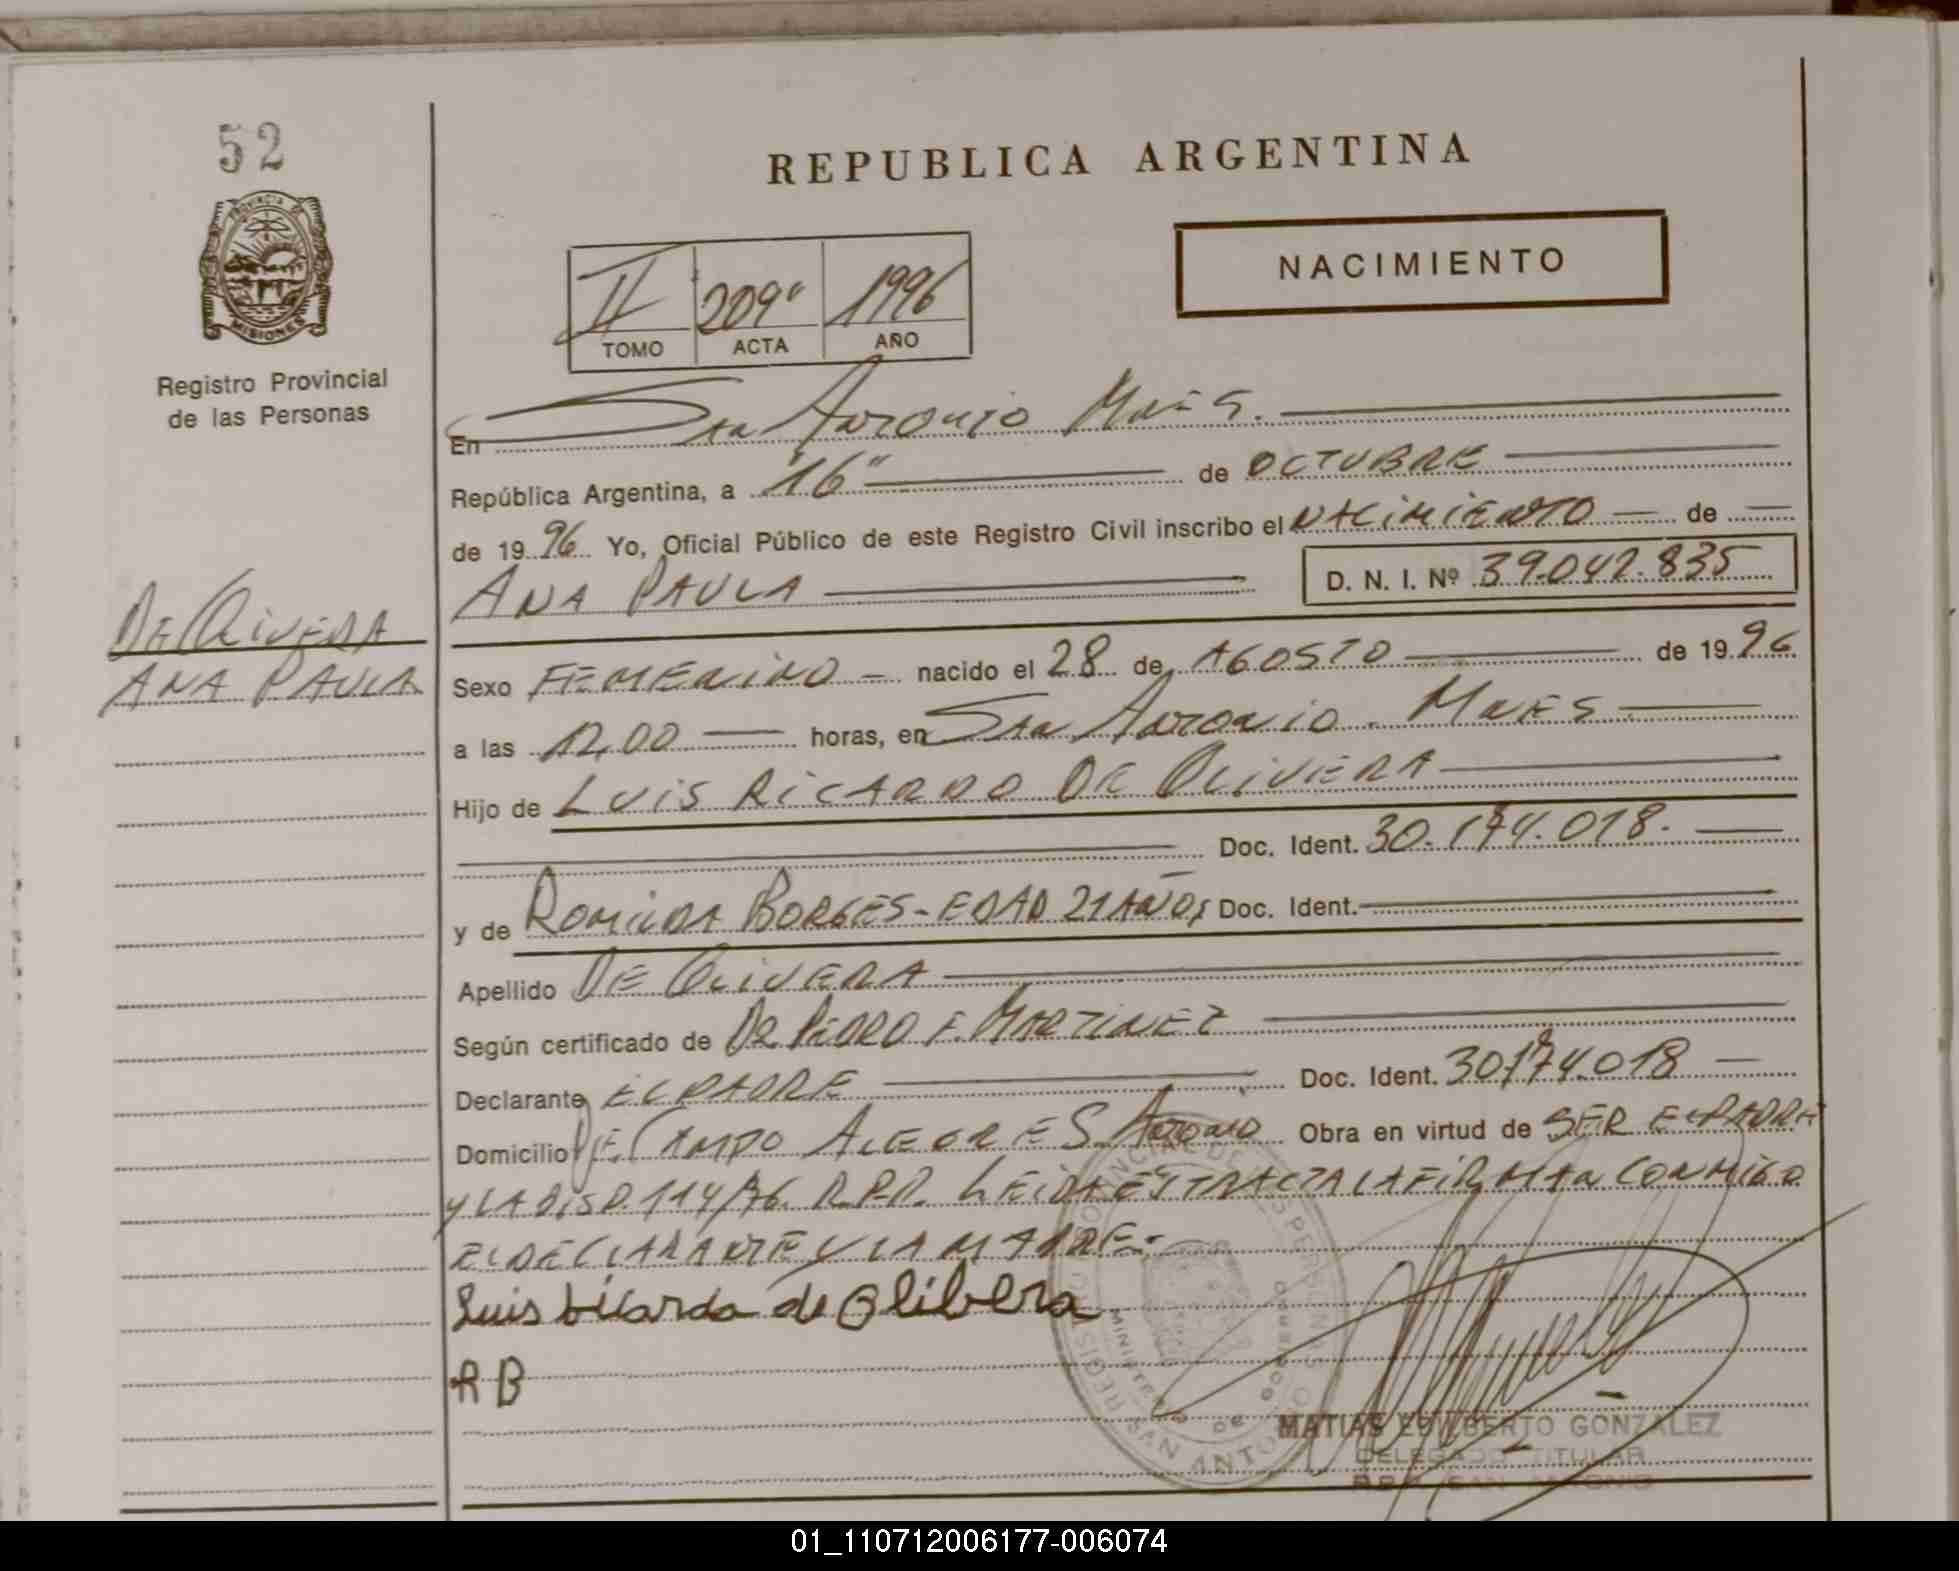 52
REPUBLICA ARGENTINA
PROVINCIA DE
MISIONES
Registro Provincial
de las Personas
NACIMIENTO
II 209" 1996
TOMO ACTA AÑO
En San Antonio Mnes.
República Argentina, a "16" de OCTUBRE
de 1996 Yo, Oficial Público de este Registro Civil inscribo el NACIMIENTO de
ANA PAULA D. N. I. Nº 39.042.835
DE OLIVERA
ANA PAULA
Sexo FEMENINO nacido el 28 de AGOSTO de 1996
a las 12,00 horas, en San Antonio. Mnes
Hijo de LUIS RICARDO DE OLIVERA
Doc. Ident. 30.174.018.
y de ROMILDA BORGES-EDAD 21 AÑOS Doc. Ident.
Apellido DE OLIVERA
Según certificado de DR PEDRO F. MARTINEZ
Declarante EL PADRE Doc. Ident. 30174.018
Domicilio DE CAMPO ALEGRE S. Antonio Obra en virtud de SER EL PADRE
Y LA DISP. 114/76. R.P.P. LEIDA ESTA ACTA LA FIRMAN CONMIGO
EL DECLARANTE Y LA MADRE.-
Luis bicardo de Olibera
RB
MATIAS EDILBERTO GONZALEZ
DELEGADO TITULAR
SAN ANTONIO
01_110712006177-006074